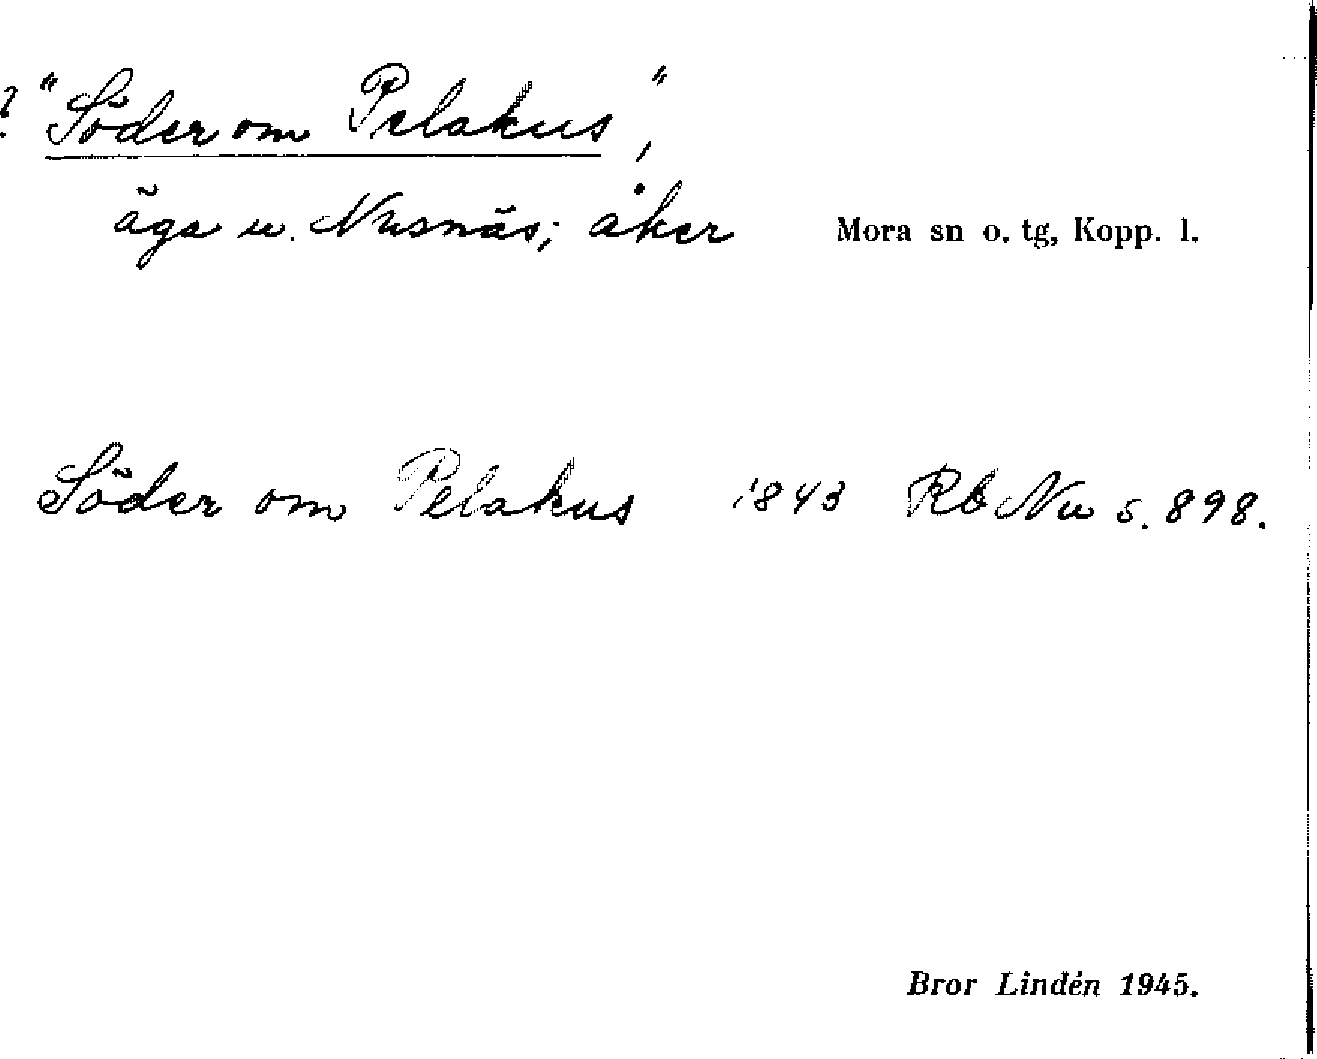 ? "Söder om Pelakus",
äga u. Nusnäs; åker Mora sn o. tg, Kopp. l.
Söder om Pelakus 1843 Rb Nu s. 898.
Bror Lindén 1945.